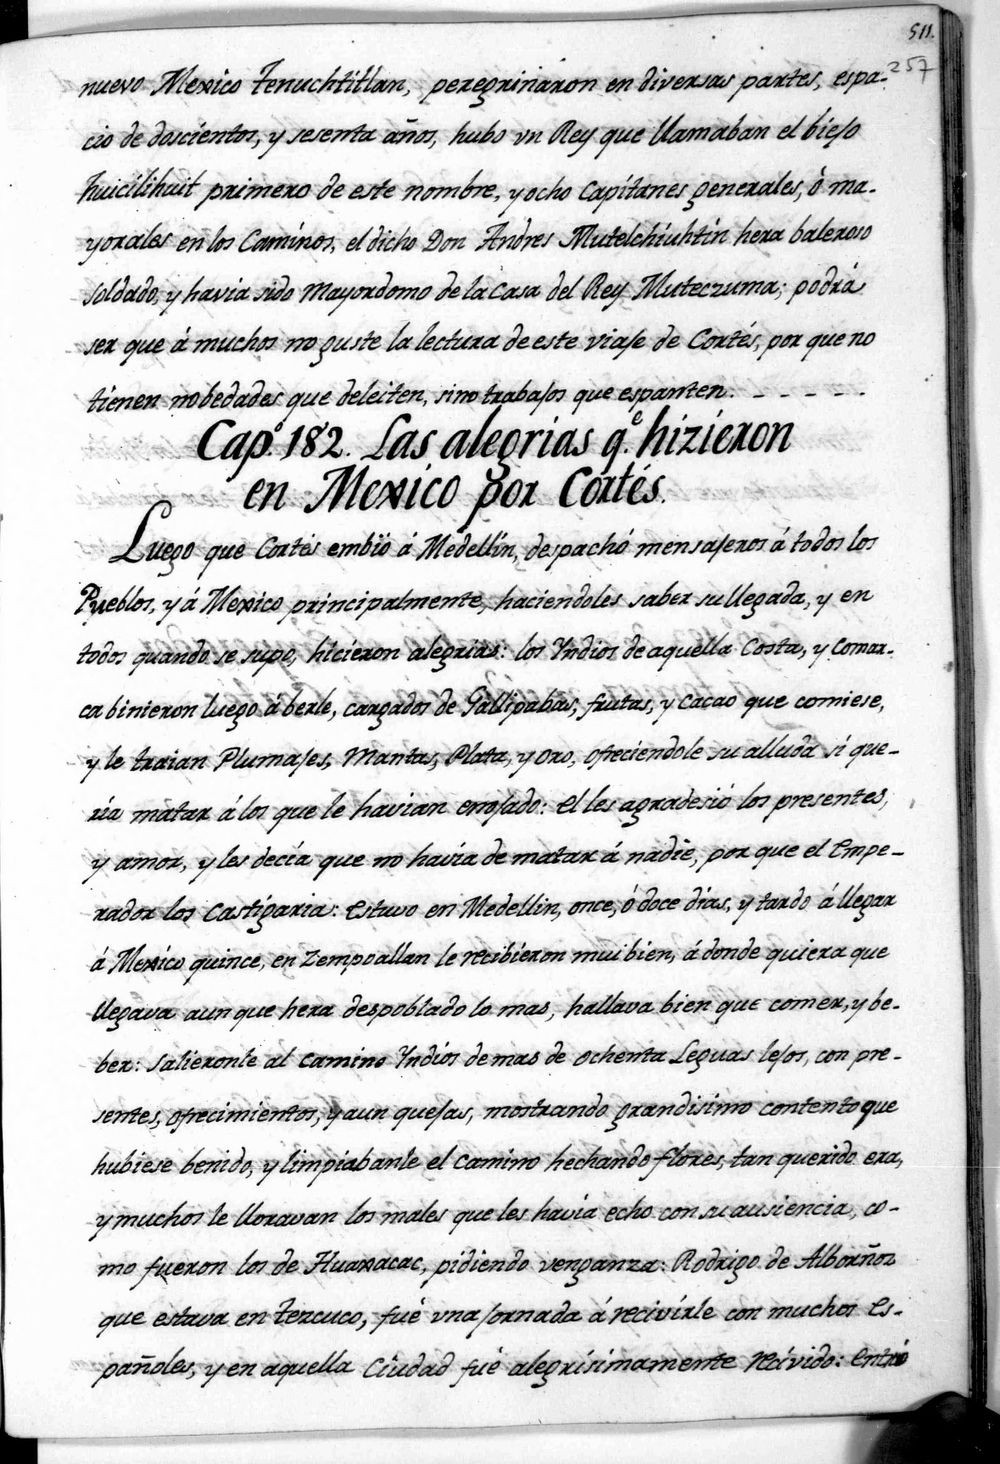 511.
257
nuevo Mexico Tenuchtitlan, peregrinaron en diversas partes, espa-
cio de doscientos, y sesenta años, hubo vn Rey que llamaban el biejo
huicilihuit primero de este nombre, y ocho Capitanes generales, ò ma-
yorales en los Caminos, el dicho Don Andres Mutelchiuhtin hera baleroso
soldado, y havia sido Mayordomo de la Casa del Rey Muteczuma; podrá
ser que á muchos no guste la lectura de este viaje de Cortés, por que no
tienen nobedades que deleiten, sino trabajos que espanten. - - - - -
Cap.º 182. Las alegrias q.e hizieron
en Mexico por Cortés.
Luego que Cortés embió á Medellín, despachó mensajeros á todos los
Pueblos, y á Mexico principalmente, haciendoles saber su llegada, y en
todos quando se supo, hicieron alegrias: los Yndios de aquella Costa, y comar-
ca binieron luego á berle, cargados de Gallipabas, frutas, y cacao que comiese,
y le traian Plumajes, Mantas, Plata, y oro, ofreciendole su alluda si que-
ría matar á los que le havian enojado: el les agradesió los presentes,
y amor, y les decía que no havía de matar á nadie, por que el Empe-
rador los Castigaria: estuvo en Medellin, once, ó doce días, y tardó á llegar
á Mexico quince, en Zempoallan le recibieron mui bien, á donde quiera que
llegava aun que hera despoblado lo mas, hallava bien que comer, y be-
ber: salieronle al camino Yndios de mas de ochenta Leguas lejos, con pre-
sentes, ofrecimientos, y aun quejas, mostrando grandisimo contento que
hubiese benido, y limpiabanle el camino hechando flores, tan querido era,
y muchos le lloravan los males que les havia echo con su ausiencia, co-
mo fueron los de Huaxacac, pidiendo venganza: Rodrigo de Alborñoz
que estava en Tezcuco, fuè vna jornada á recivírle con muchos Es-
pañoles, y en aquella Ciudad fuè alegrísimamente recivido: entró